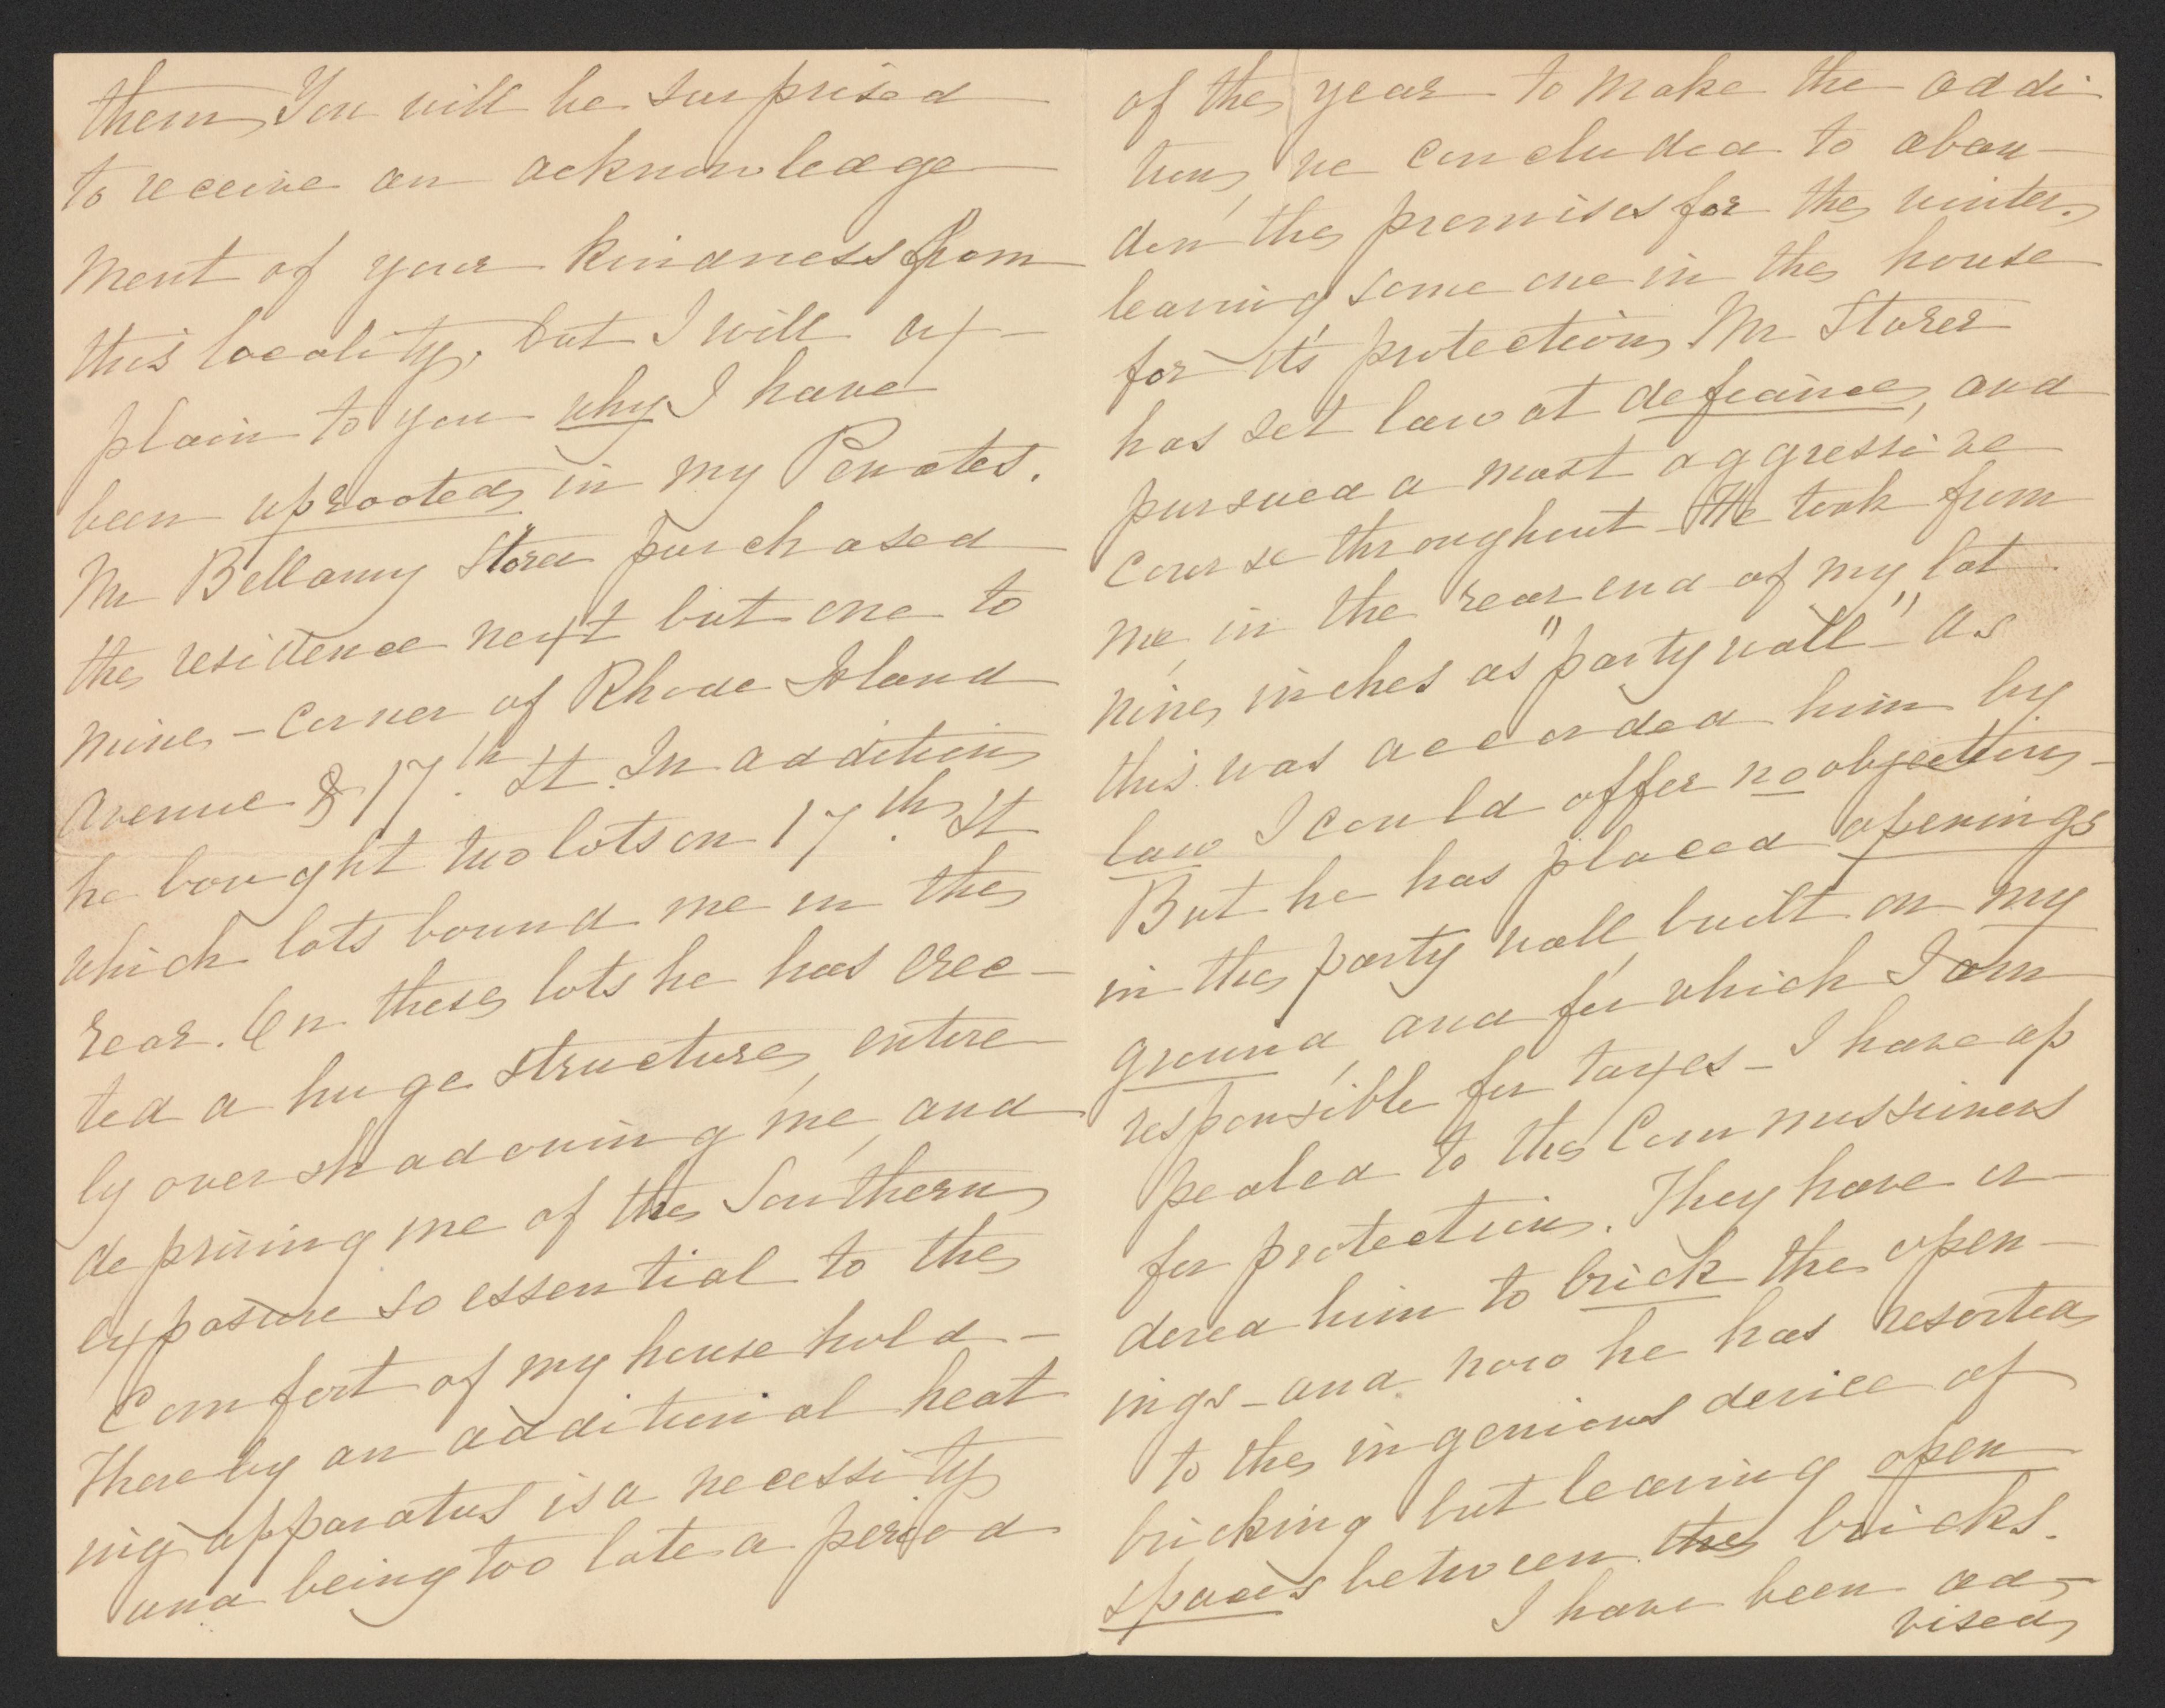 them, You will be surprised
to receive an acknowledge
ment of your kindness from
this locality, but I will ex-
plain to you why I have
been uprooted in my Penates.
Mr Bellamy Storer purchased
the residence next but one to
mine - corner of Rhode Island
Avenue & 17th St. In addition
he bought two lots on 17th St
which lots bound me in the
rear. On these lots he has erec-
ted a huge structure, entire
ly overshadowing me, and
depriving me of the Southern
exposure so essential to the
Comfort of my household -
Thereby an additional heat
ing apparatus is a necessity
and being too late a period
of the year to make the addi
tion, we concluded to aban-
don the premises for the winter,
leaving some one in the house
for its protection. Mr Storer
has set law at defiance, and
pursued a most aggressive
course throughout - He took from
me, in the rear end of my lot
nine inches as "party wall" - as
this was accorded him by
law I could offer no objection -
But he has placed openings
in the party wall, built on my
ground, and for which I am
responsible for taxes - I have ap
pealed to the Commissioners
for protection. They have or-
dered him to brick the open-
ings - and now he has resorted
to the ingenious device of
bricking but leaving open
spaces between the bricks.
I have been ad-
vised